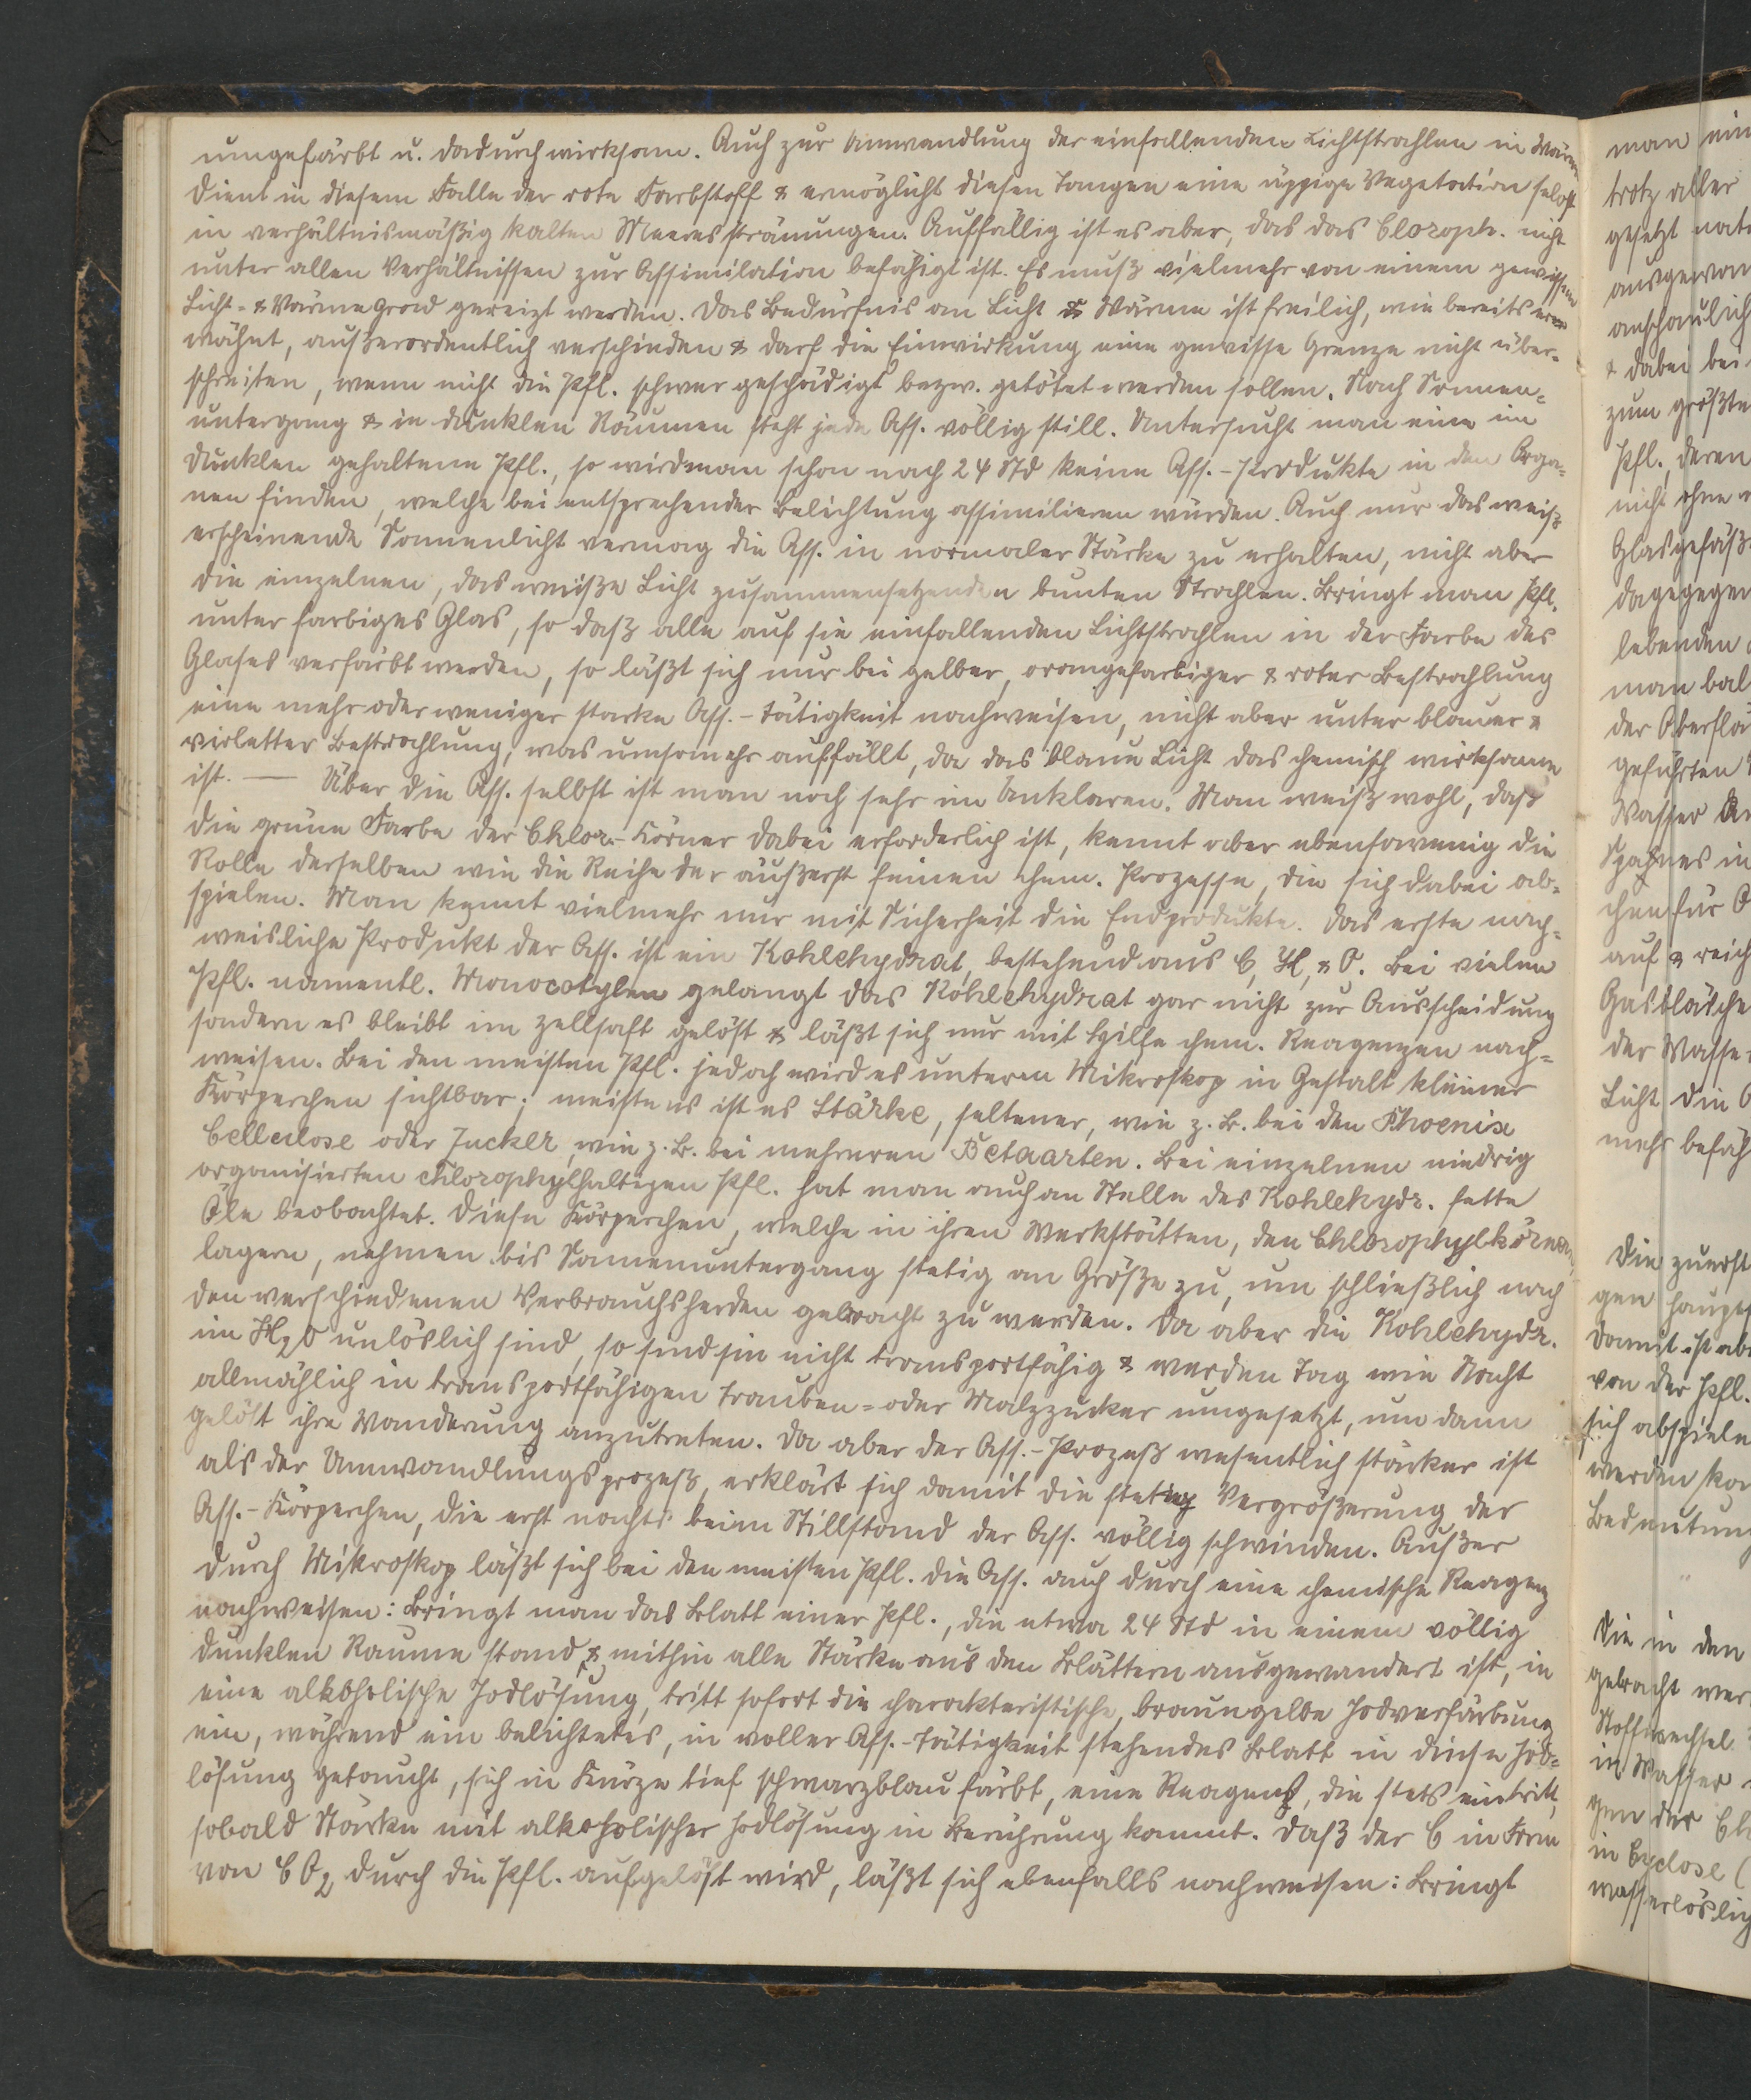 umgefärbt u. dadurch wirksam. Auch zur Umwandlung der einfallenden Lichtstrahlen in Wärme
dient in diesem Falle der rote Farbstoff & ermöglicht diesen Tangen eine üppige Vegetation selbst
in verhältnismäßig kalten Meeresströmungen. Auffällig ist es aber, das das Cloroph. nicht
unter allen Verhältnissen zur Assimilation befähigt ist. Es muß vielmehr von einem gewissen
Licht- & Wärmegrad gereizt werden. Das Bedürfnis an Licht & Wärme ist freilich, wie bereits er=
wähnt, außerordentlich verschieden & darf die Einwirkung eine gewisse Grenze nicht über=
schreiten, wenn nicht die Pfl. schwer geschädigt bezw. getötet werden sollen. Nach Sonnen=
untergang & in dunklen Räumen steht jede Ass. völlig still. Untersucht man eine im
Dunklen gehaltene Pfl., so wird man schon nach 24 Std keine Ass.-Produkte in den Orga=
nen finden, welche bei entsprechender Belichtung assimilieren würden. Auch nur das weiß
erscheinende Sonnenlicht vermag die Ass. in normaler Stärke zu erhalten, nicht aber
die einzelnen, das weiße Licht zusammensetzenden bunten Strahlen. Bringt man Pfl.
unter farbiges Glas, so daß alle auf sie einfallenden Lichtstrahlen in der Farbe des
Glases verfärbt werden, so läßt sich nur bei gelber, orangefarbiger & roter Bestrahlung
eine mehr oder weniger starke Ass.-Tätigkeit nachweisen, nicht aber unter blauer &
violetter Bestrahlung, was umsomehr auffällt, da das blaue Licht das chemisch wirksame
ist. — Über die Ass. selbst ist man noch sehr im Unklaren. Man weiß wohl, daß
die grüne Farbe der Chlor.-Körner dabei erforderlich ist, kennt aber ebensowenig die
Rolle derselben wie die Reihe der äußerst feinen chem. Prozesse, die sich dabei ab=
spielen. Man kennt vielmehr nur mit Sicherheit die Endprodukte. Das erste nach=
weisliche Produkt der Ass. ist ein Kohlehydrat, bestehend aus C, H, & O. Bei vielen
Pfl. namentl. Monocotylen gelangt das Kohlehydrat gar nicht zur Ausscheidung
sondern es bleibt im Zellsaft gelöst & läßt sich nur mit Hilfe chem. Reagenzen nach=
weisen. Bei den meisten Pfl. jedoch wird es unterem Mikroskop in Gestalt kleiner
Körperchen sichtbar; meistens ist es Stärke, seltener, wie z. B. bei den Phoenix
Cellulose oder Zucker, wie z. B. bei mehreren Betaarten. Bei einzelnen niedrig
organisierten chlorophylhaltigen Pfl. hat man auch an Stelle des Kohlehydr. fette
Öle beobachtet. Diese Körperchen, welche in ihren Werkstätten, den Chlorophylkörnern,
lagern, nehmen bis Sonnenuntergang stetig an Größe zu, um schließlich nach
den verschiedenen Verbrauchsherden gebracht zu werden. Da aber die Kohlehydr.
im H2O unlöslich sind, so sind sie nicht transportfähig & werden Tag wie Nacht
allmählich in transportfähigen Trauben= oder Malzzucker umgesetzt, um dann
gelöst ihre Wanderung anzutreten. Da aber der Ass.-Prozeß wesentlich stärker ist
als der Umwandlungsprozeß, erklärt sich damit die stetig Vergrößerung der
Ass.-Körperchen, die erst nachts beim Stillstand der Ass. völlig schwinden. Außer
durch Mikroskop läßt sich bei den meisten Pfl. die Ass. auch durch eine chemische Reagenz
nachweisen: Bringt man das Blatt einer Pfl., die etwa 24 Std in einem völlig
dunklen Raume stand, & mithin alle Stärke aus den Blättern ausgewandert ist, in
eine alkoholische Jodlösung, tritt sofort die charakteristische, braungelbe Jodverfärbung
ein, während ein belichtetes, in voller Ass.-Tätigkeit stehendes Blatt in diese Jod=
lösung getaucht, sich in Kürze tief schwarzblau färbt, eine Reagenz, die stets eintritt,
sobald Stärke mit alkoholischer Jodlösung in Berührung kommt. Daß der C in Form
von CO2 durch die Pfl. aufgelöst wird, läßt sich ebenfalls nachweisen: Bringt
man ein
trotz aller
gesetzt
anschaulich
& dabei bei
zum größte
Pfl., deren
nicht ohne
Glasgefäß
dagegen
lebenden
man bal
der Oberflä
geführten
Wasser
Spahnes in
chen für O
auf & reich
Gasbläsche
der Wasser
Licht die
mehr befäh
Die zuerst
gen haupts
damit ist abe
von der Pfl.
sich abspiele
werden kan
Bedeutung
Die in den
gebracht wer
Stoffwechsel
in Wasser
gen der Chl
in Cyclose (
wasserlöslich